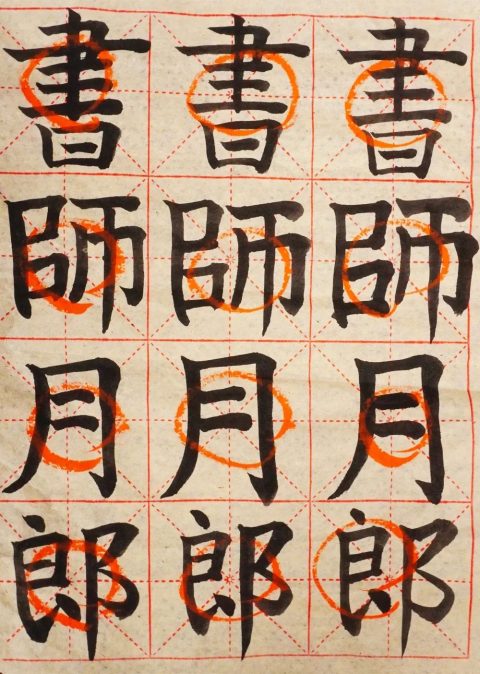 書書書
師師師
月月月
郎郎郎